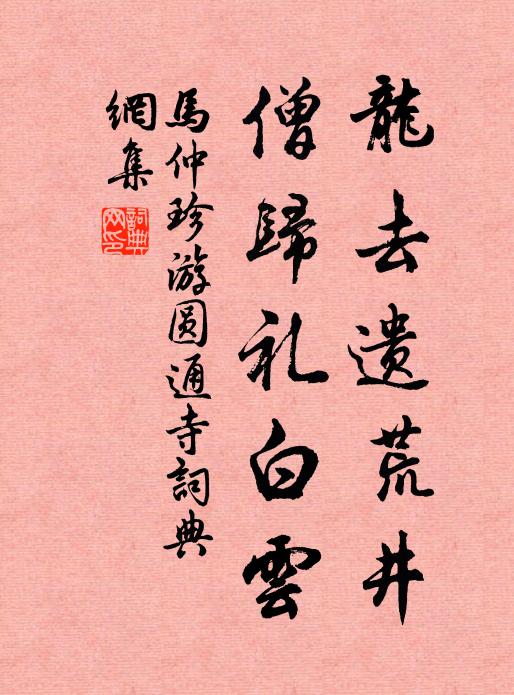 龍去遺荒井
僧歸礼白雲
馬仲珍游圓通寺詞典
網集
詞典
网印